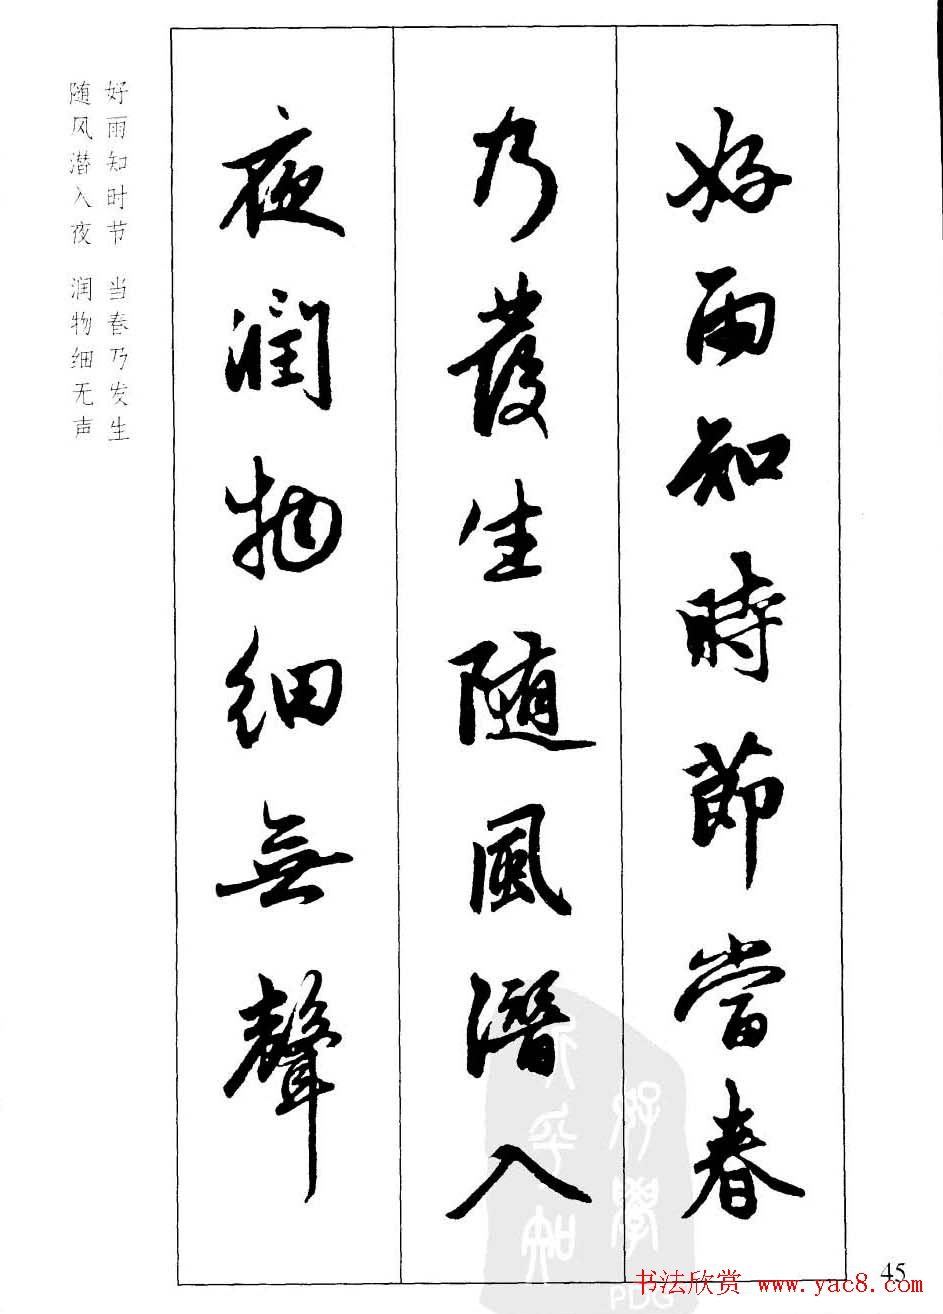 好雨知時節當春
乃發生随風潛入
夜潤物細無聲
好雨知时节 当春乃发生
随风潜入夜 润物细无声
45
书法欣赏 www.yac8.com
PDG